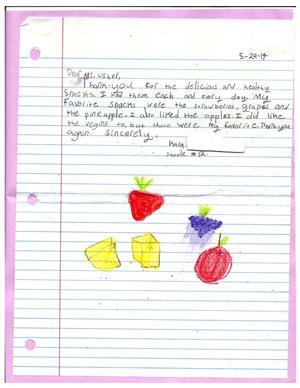 5-29-14
Dear Ms. Usher,
Thank-you for the delicious and healthy
snacks. I had them each and every day. My
favorite snacks were the strawberries, grapes and
the pineapple. I also liked the apples. I did like
the vegies to, but those were my favorite. Thank you
again. Sincerely,
#12.